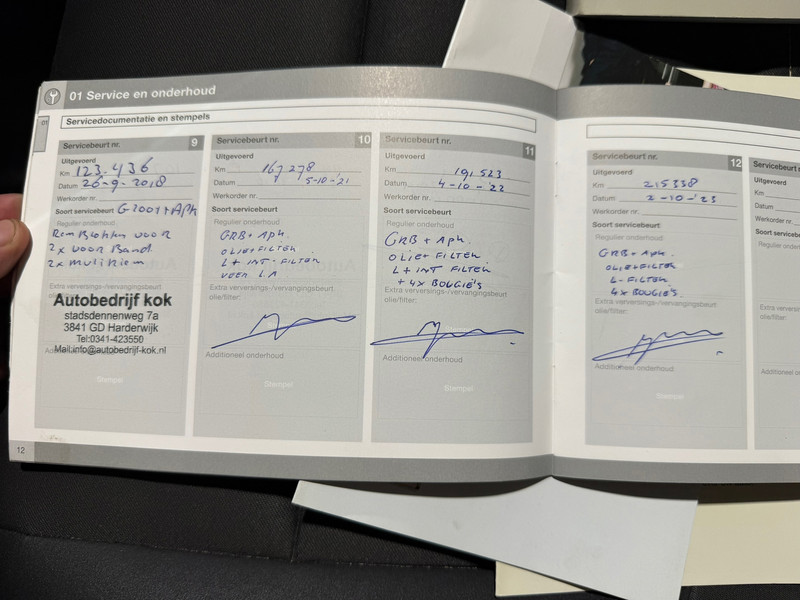 01 Service en onderhoud
01
Servicedocumentatie en stempels
Servicebeurt nr. 9
Uitgevoerd
Km 123.436
Datum 26-9-2018
Werkorder nr.
Soort servicebeurt G2001+Aph
Regulier onderhoud
RemBlokken voor
2x voor Band
2x muliRiem
Extra verversings-/vervangingsbeurt
olie/filter:
Autobedrijf kok
stadsdennenweg 7a
3841 GD Harderwijk
Tel:0341-423550
Mail:info@autobedrijf-kok.nl
Stempel
12
Servicebeurt nr. 10
Uitgevoerd
Km 167278
Datum 5-10-'21
Werkorder nr.
Soort servicebeurt
Regulier onderhoud
GRB + Aph.
OLIE+FILTER
L + INT - FILTER
VEER L.A
Extra verversings-/vervangingsbeurt
olie/filter:
Additioneel onderhoud
Stempel
Servicebeurt nr. 11
Uitgevoerd
Km 191523
Datum 4-10-22
Werkorder nr.
Soort servicebeurt
Regulier onderhoud
GRB + Aph.
OLIE+ FILTER
L + INT FILTER
+ 4x BOUGIE'S
Extra verversings-/vervangingsbeurt
olie/filter:
Additioneel onderhoud
Stempel
Servicebeurt nr. 12
Uitgevoerd
Km 215338
Datum 2-10-'23
Werkorder nr.
Soort servicebeurt
Regulier onderhoud
GRB+ Aph.
OLIE+FILTER
L-FILTER
4x BOUGIE'S.
Extra verversings-/vervangingsbeurt
olie/filter:
Additioneel onderhoud
Stempel
Servicebeurt
Uitgevoerd
Km
Datum
Werkorder nr.
Regulier
Extra
olie/filter
Additioneel